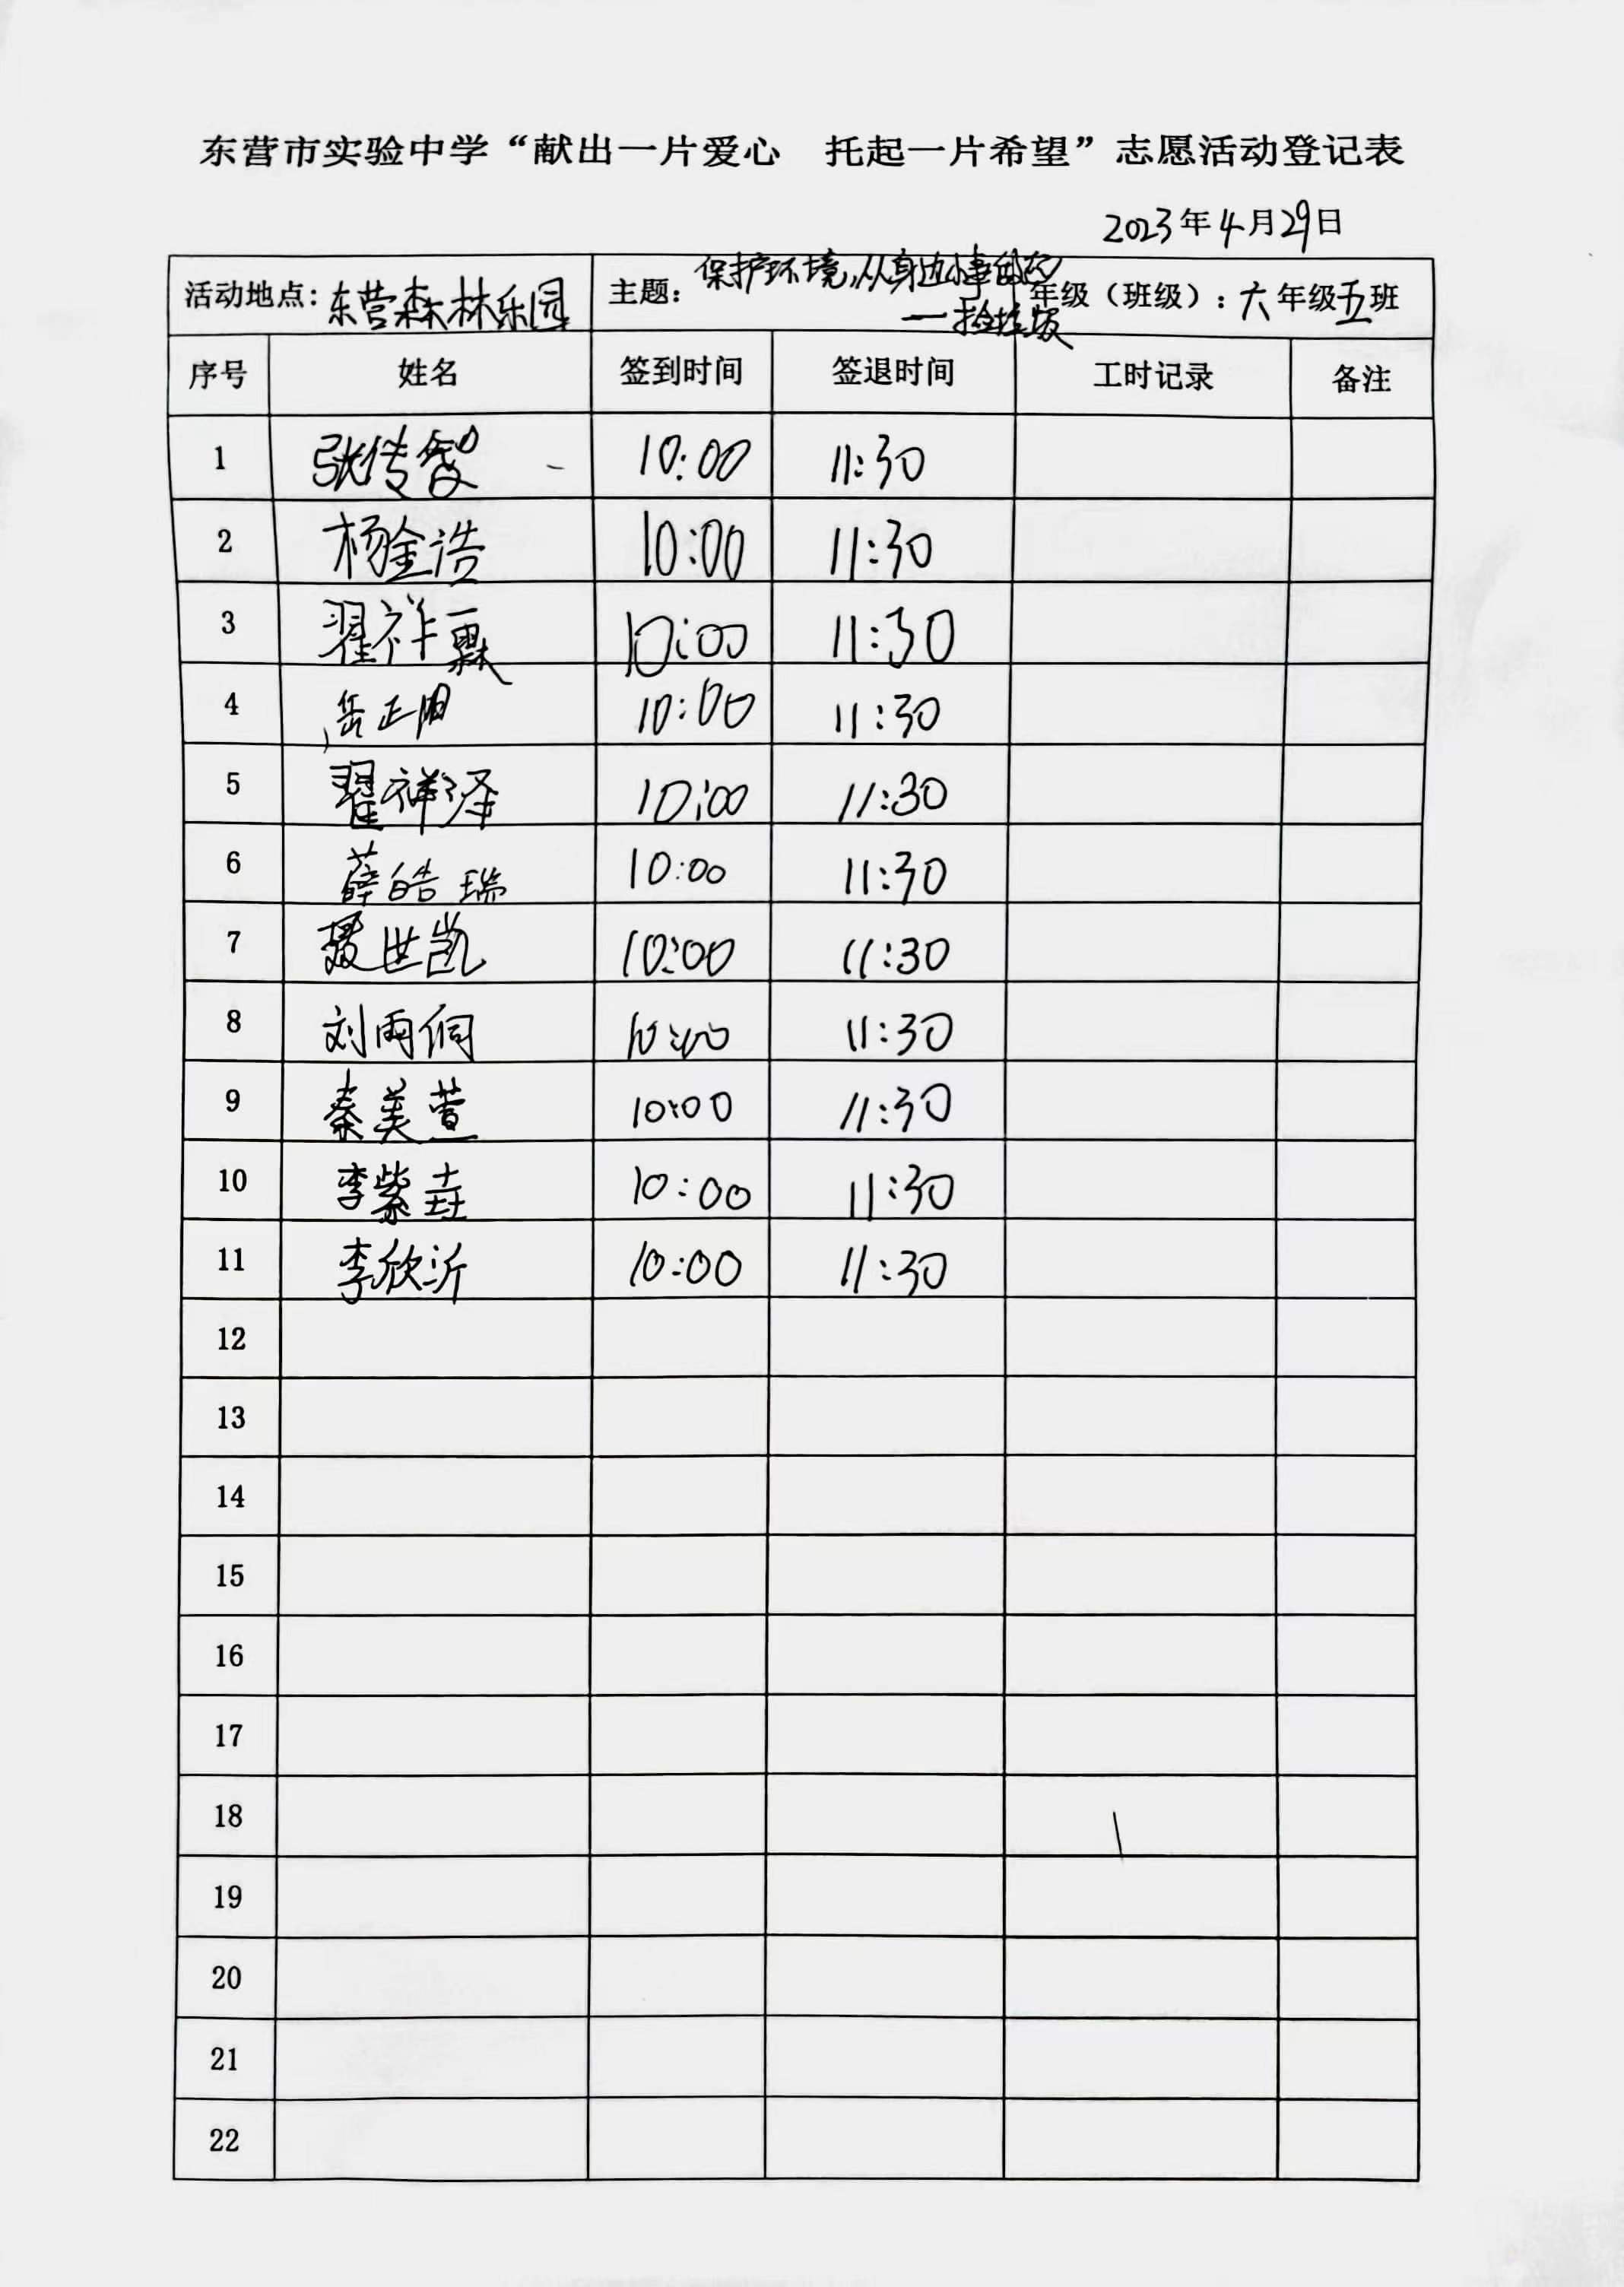 东营市实验中学“献出一片爱心 托起一片希望”志愿活动登记表
2023年4月29日
活动地点：东营森林乐园 主题：保护环境，从身边小事做起 年级（班级）：六年级五班
一捡垃圾
序号 姓名 签到时间 签退时间 工时记录 备注
1 张传智 10:00 11:30
2 杨金浩 10:00 11:30
3 翟祥霖 10:00 11:30
4 岳正阳 10:00 11:30
5 翟祥泽 10:00 11:30
6 薛皓瑞 10:00 11:30
7 聂世凯 10:00 11:30
8 刘雨侗 10:00 11:30
9 秦美萱 10:00 11:30
10 李紫垚 10:00 11:30
11 李欣沂 10:00 11:30
12
13
14
15
16
17
18
19
20
21
22